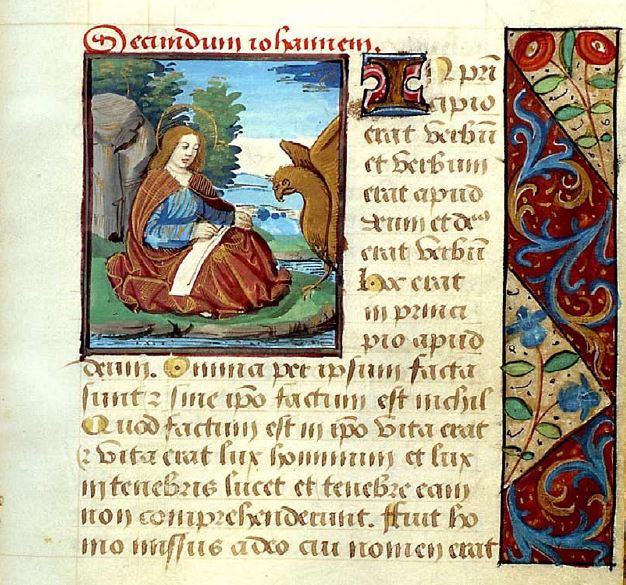 Secundum iohannem.
In pri
cipio
erat verbũ
et verbum
erat apud
deum et deꝰ
erat verbũ
Hoc erat
in princi
pio apud
deum. Omnia per ipsum facta
sunt ⁊ sine ipo factum est nichil
Quod factum est in ipo vita erat
⁊ vita erat lux hominum et lux
in tenebris lucet et tenebre eam
non comprehenderunt. Fuit ho
mo missus a deo cui nomen erat